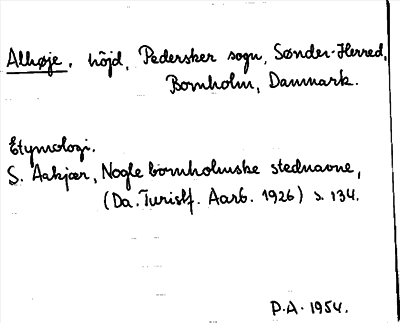 Alhøje, höjd, Pedersker sogn, Sønder-Herred,
Bornholm, Danmark.
Etymologi.
S. Aakjær, Nogle bornholmske stednavne,
(Da. Turistf. Aarb. 1926) s. 134.
P.A. 1954.